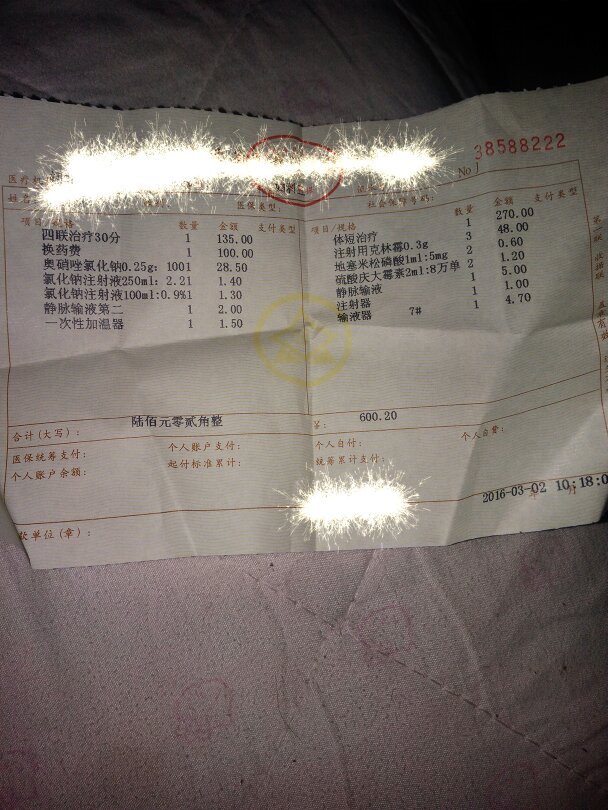 38588222
No
医保类型：
社会保障号码：
项目/规格 数量 金额 支付类型
四联治疗30分 1 135.00
换药费 1 100.00
奥硝唑氯化钠0.25g：1001 28.50
氯化钠注射液250ml：2.21 1.40
氯化钠注射液100ml:0.9%1 1.30
静脉输液第二 1 2.00
一次性加温器 1 1.50
项目/规格 数量 金额 支付类型
体短治疗 1 270.00
注射用克林霉0.3g 3 48.00
地塞米松磷酸1ml:5mg 2 0.60
硫酸庆大霉素2ml:8万单 2 1.20
静脉输液 1 5.00
注射器 1 1.00
输液器 7# 1 4.70
合计(大写)： 陆佰元零贰角整 600.20
医保统筹支付： 个人账户支付： 个人自付： 个人自费：
个人账户余额： 起付标准累计： 统筹累计支付：
2016-03-02 10:18:0
款单位(章)：